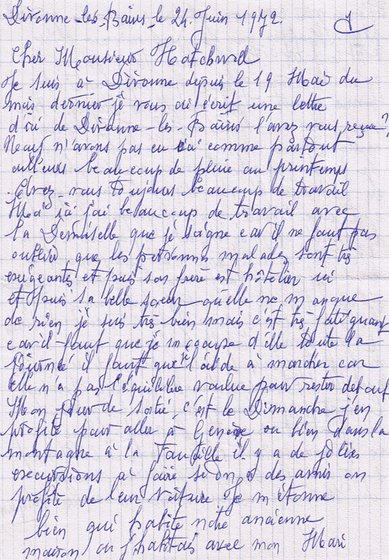 Divonne-les-Bains le 24 Juin 1972. 1
Cher Monsieur
Je suis à Divonne depuis le 19 Mai du
mois dernier je vous ai écrit une lettre
d'ici de Divonne-les-Bains l'avez vous reçue?
Nous n'avons pas eu ici comme partout
ailleurs beaucoup de pluie au printemps
Avez-vous toujours beaucoup de travail
Moi ici j'ai beaucoup de travail avec
la Demoiselle que je soigne car il ne faut pas
oublier que les personnes malades sont très
exigeantes et puis son frère est hôtelier ici
et puis sa belle soeur qu'elle ne manque
de rien je suis très bien mais c'est très fatiguant
car il faut que je m'occupe d'elle toute la
journée il faut que l'aide à marcher car
elle n'a pas l'équilibre voulue pour rester debout
Mon jour de sortie c'est le Dimanche j'en
profite pour aller à Genève ou bien dans la
montagne à la Faucille il y a de jolies
excursions à faire si on a des amis on
profite de leur voiture Je m'étonne
bien qui habite notre ancienne
maison ou j'habitais avec mon Mari